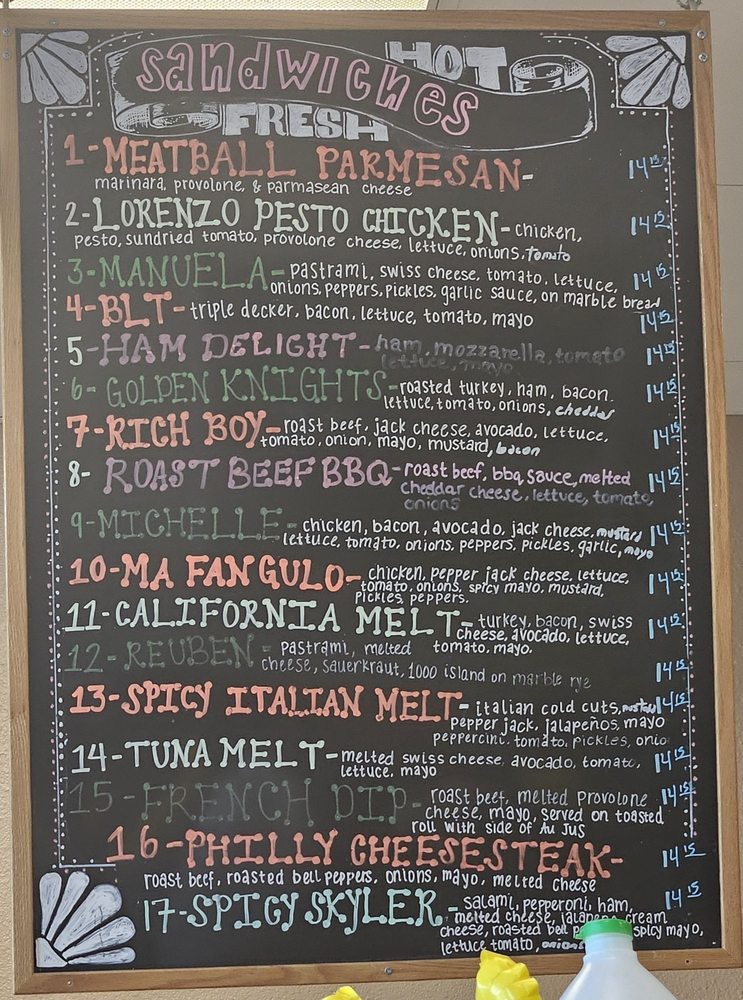 Sandwiches HOT
FRESH
1-MEATBALL PARMESAN- 14 15
marinara, provolone, & parmasean cheese
2-LORENZO PESTO CHICKEN- chicken, 14 15
pesto, sundried tomato, provolone cheese, lettuce, onions, tomato
3-MANUELA- pastrami, swiss cheese, tomato, lettuce, 14 15
onions, peppers, pickles, garlic sauce, on marble bread
4-BLT- triple decker, bacon, lettuce, tomato, mayo 14 15
5-HAM DELIGHT- ham, mozzarella, tomato 14 15
lettuce, mayo
6-GOLDEN KNIGHTS- roasted turkey, ham, bacon. 14 15
lettuce, tomato, onions, cheddar
7-RICH BOY- roast beef, jack cheese, avocado, lettuce, 14 15
tomato, onion, mayo, mustard, bacon
8-ROAST BEEF BBQ- roast beef, bbq sauce, melted 14 15
cheddar cheese, lettuce, tomato,
onions
9-MICHELLE- chicken, bacon, avocado, jack cheese, mustard 14 15
lettuce, tomato, onions, peppers, pickles, garlic, mayo
10-MA FAN GULO- chicken, pepper jack cheese, lettuce, 14 15
tomato, onions, spicy mayo, mustard,
pickles, peppers.
11-CALIFORNIA MELT- turkey, bacon, swiss 14 15
cheese, avocado, lettuce,
tomato, mayo.
12-REUBEN- pastrami, melted 14 15
cheese, sauerkraut, 1000 island on marble rye
13-SPICY ITALIAN MELT- italian cold cuts, mustard 14 15
pepper jack, jalapeños, mayo
peppercini, tomato, pickles, onio
14-TUNA MELT- melted swiss cheese, avocado, tomato, 14 15
lettuce, mayo
15-FRENCH DIP- roast beef, melted provolone 14 15
cheese, mayo, served on toasted
roll with side of Au Jus
16-PHILLY CHEESESTEAK- 14 15
roast beef, roasted bell peppers, onions, mayo, melted cheese
17-SPICY SKYLER- salami, pepperoni, ham, 14 15
melted cheese, jalapeno cream
cheese, roasted bell spicy mayo,
lettuce tomato,